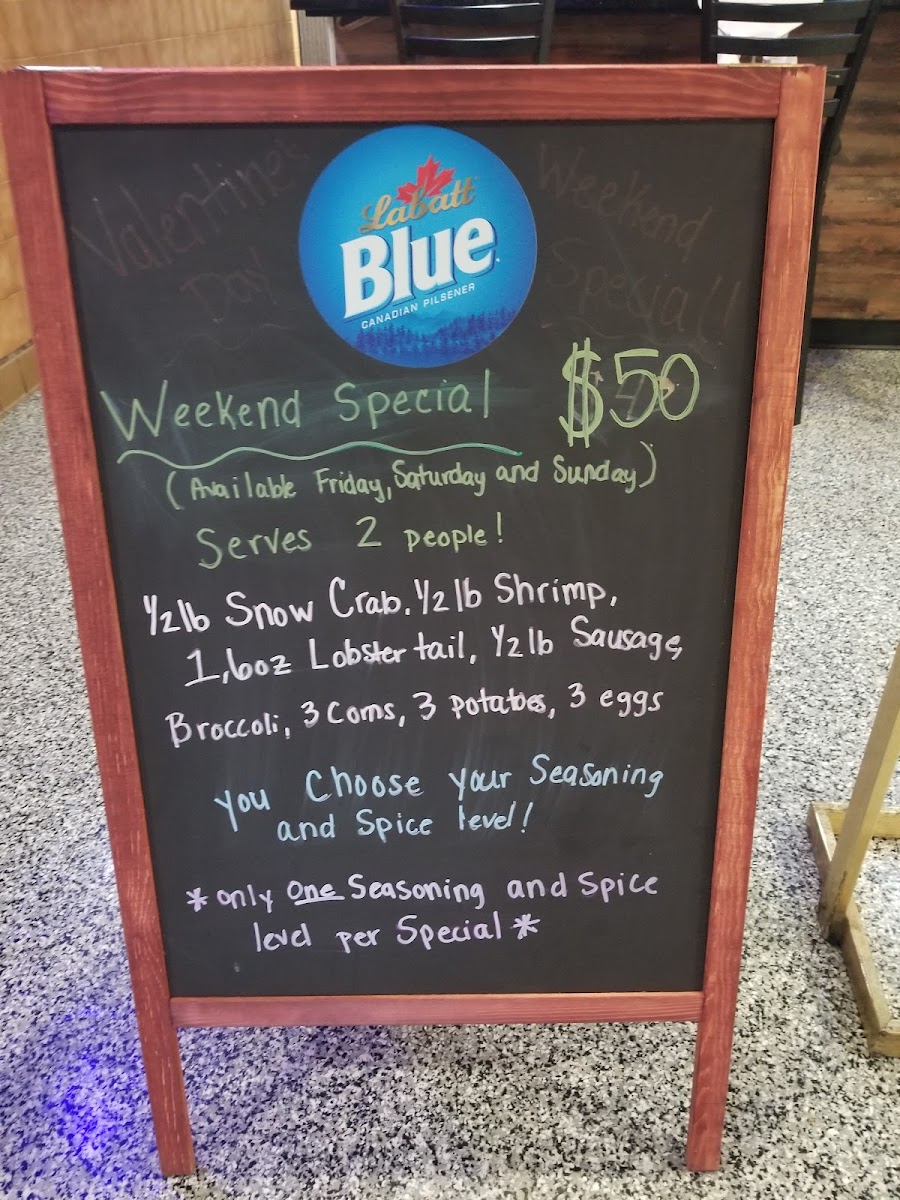 Valentine's Day
Weekend Special!
Labatt
Blue
CANADIAN PILSENER
Weekend Special $50
(Available Friday, Saturday and Sunday)
Serves 2 people!
1/2 lb Snow Crab, 1/2 lb Shrimp,
1, 6oz Lobster tail, 1/2 lb Sausage,
Broccoli, 3 Corns, 3 potatoes, 3 eggs
you Choose your Seasoning
and Spice level!
*only one Seasoning and Spice
level per Special*